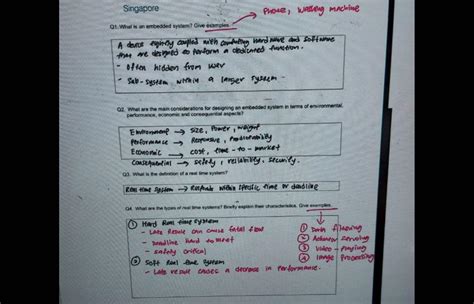 Singapore
Phone, washing machine
Q1. What is an embedded system? Give examples.
A device tightly coupled with computing Hardware and software
that are designed to perform a dedicated function.
- Often hidden from user
- Sub-System within a larger system
Q2. What are the main considerations for designing an embedded system in terms of environmental,
performance, economic and consequential aspects?
Environment → Size, Power, weight
Performance → Responsive, Predictability
Economic → cost, time-to-market
Consequential → safety, reliability, security.
Q3. What is the definition of a real time system?
Real time system → Responds within specific time or deadline
Q4. What are the types of real time systems? Briefly explain their characteristics. Give examples.
① Hard Real time System
- Late Result can cause fatal flow
- Deadline hard to meet
- Safety critical
② Soft Real time System
- Late result causes a decrease in performance.
① Data
②
③ Video -
④ Image Processing